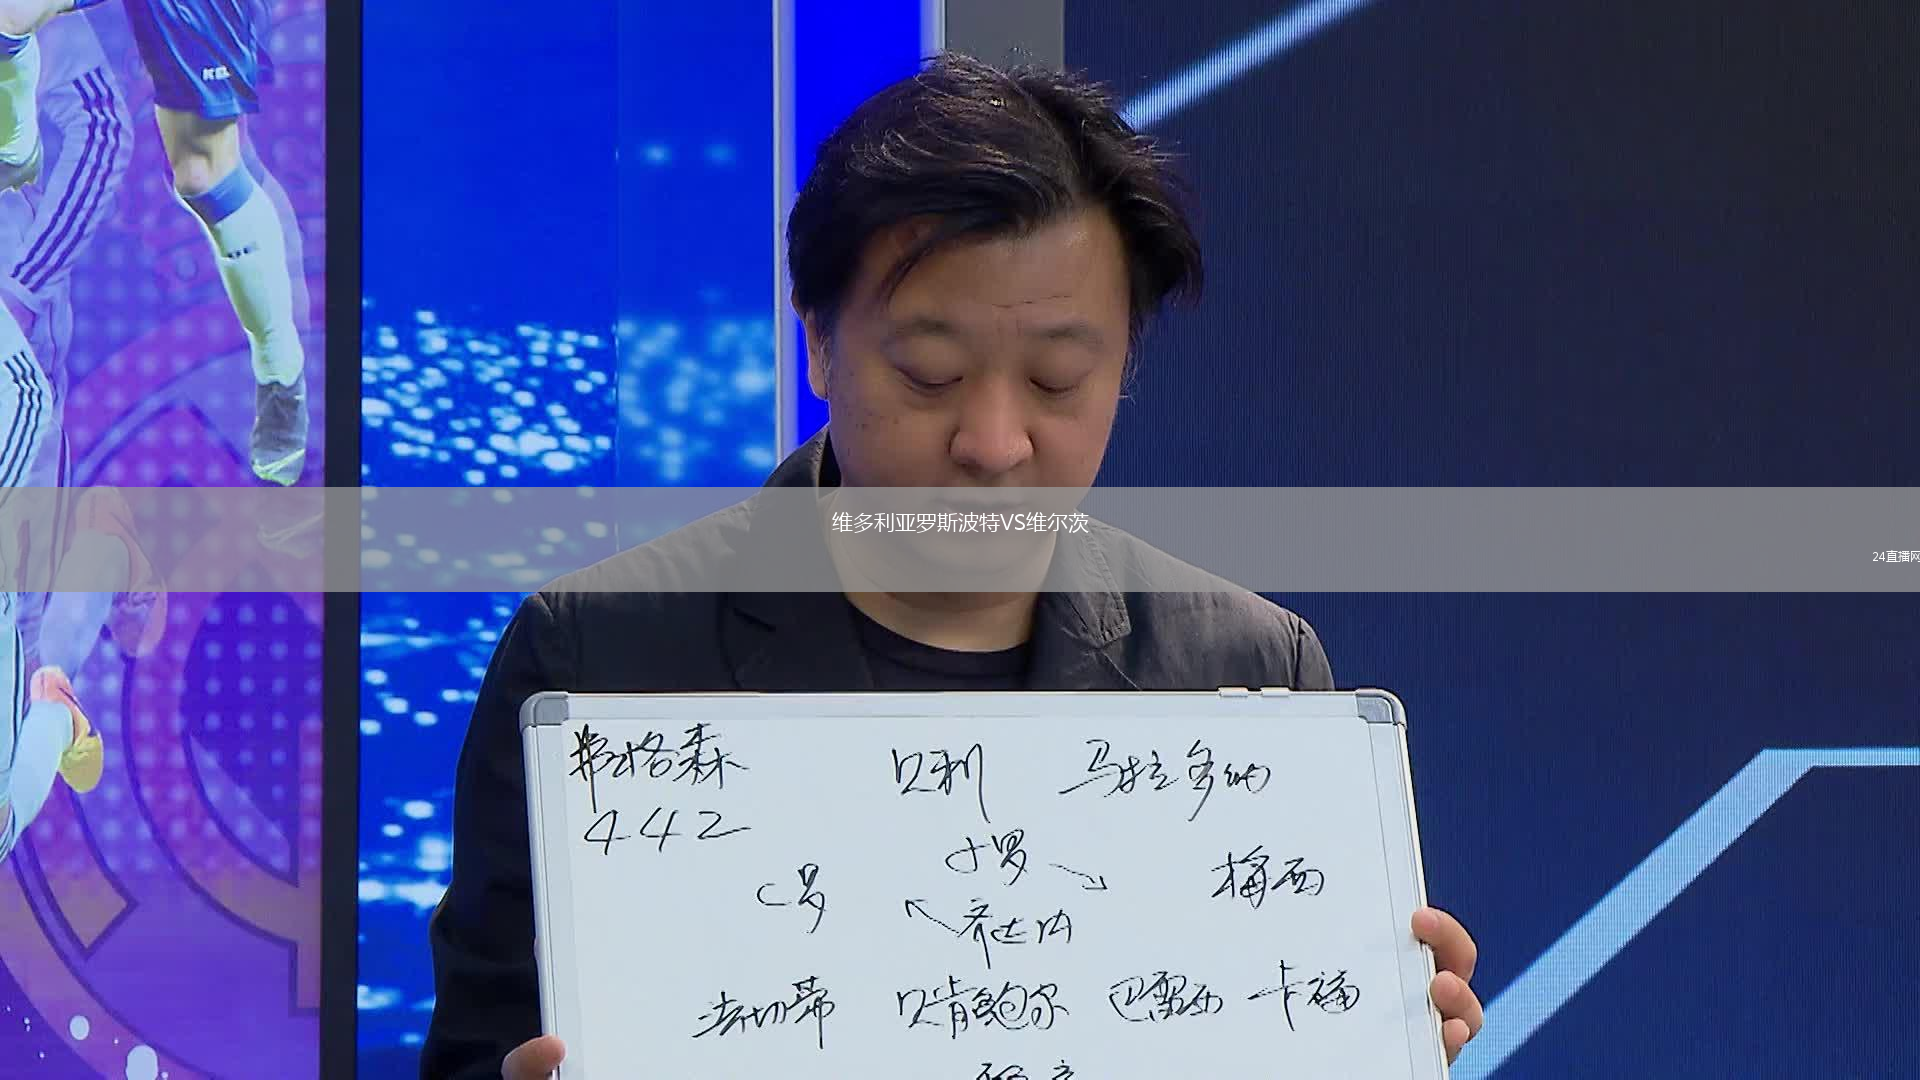 KEL
维多利亚罗斯波特VS维尔茨
24直播网
弗格森 贝利 马拉多纳
442
小罗
C罗 梅西
齐达内
法切蒂 贝肯鲍尔 巴雷西 卡福